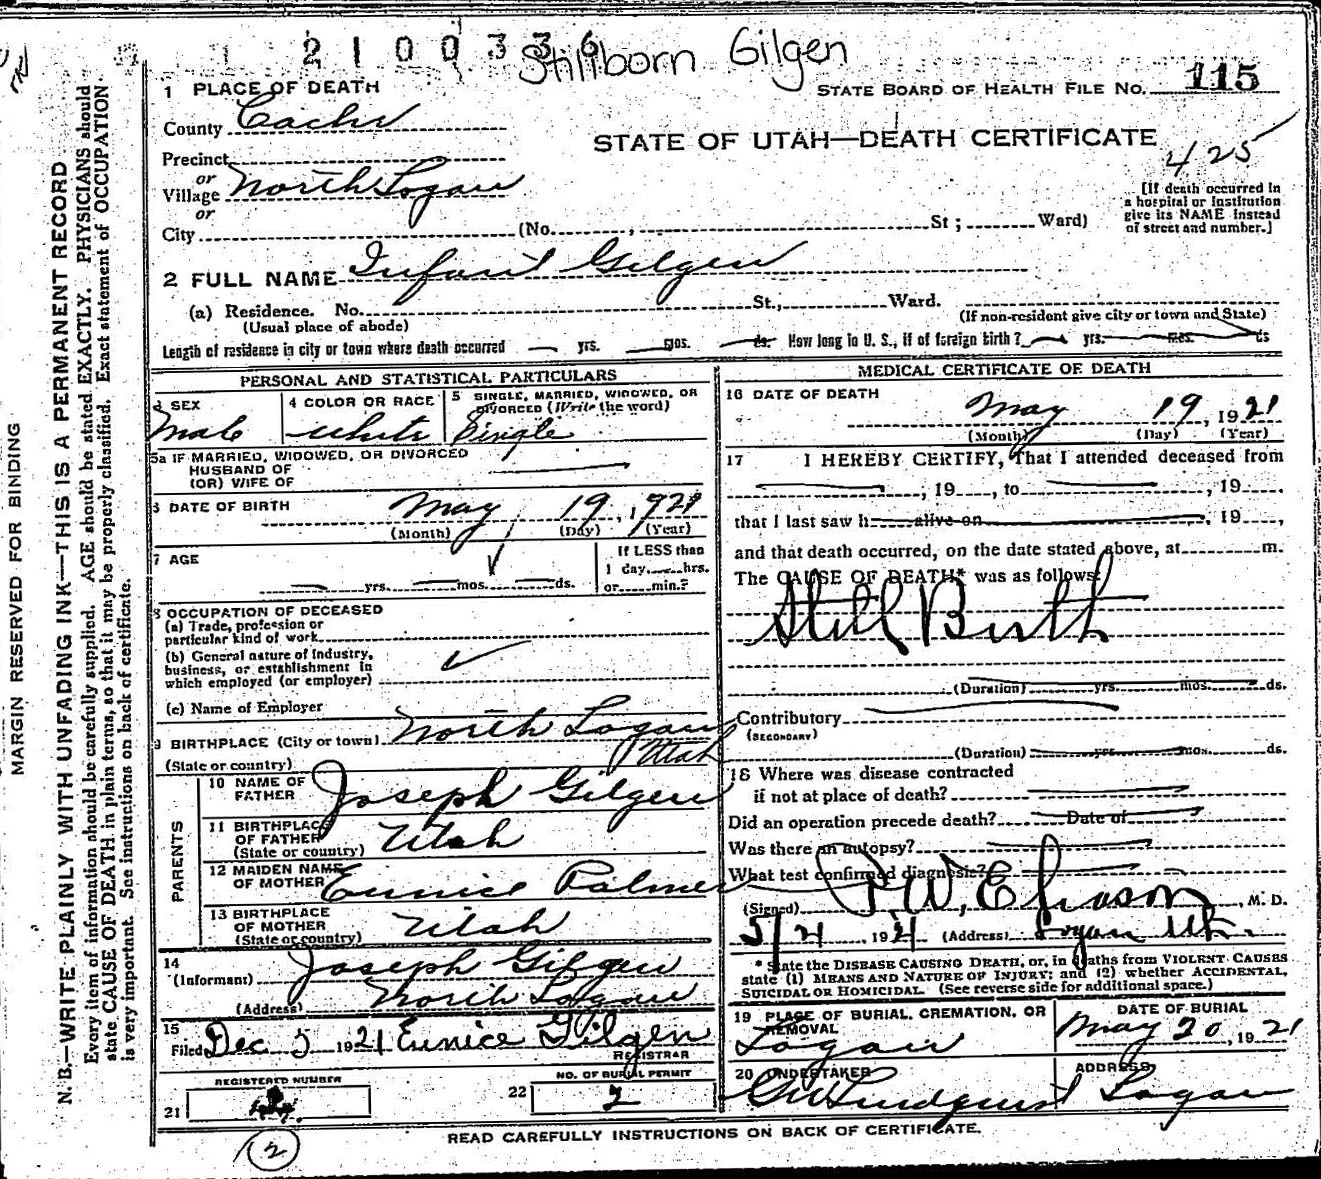 2100336
Stillborn Gilgen
STATE BOARD OF HEALTH FILE NO. 115
1 PLACE OF DEATH
County Cache
STATE OF UTAH—DEATH CERTIFICATE
425
Precinct
or
Village North Logan
or
City (No. , St ; Ward)
[If death occurred in
a hospital or institution
give its NAME instead
of street and number.]
2 FULL NAME Infant Gilgen
(a) Residence. No. St., Ward.
(Usual place of abode)
(If non-resident give city or town and State)
Length of residence in city or town where death occurred — yrs. — mos. — ds. How long in U. S., if of foreign birth? — yrs. — mos. — ds
PERSONAL AND STATISTICAL PARTICULARS
3 SEX
Male
4 COLOR OR RACE
White
5 SINGLE, MARRIED, WIDOWED, OR
DIVORCED (Write the word)
Single
5a IF MARRIED, WIDOWED, OR DIVORCED
HUSBAND OF
(OR) WIFE OF
6 DATE OF BIRTH May 19, 1921
(Month) (Day) (Year)
7 AGE
— yrs. — mos. — ds.
If LESS than
1 day, hrs.
or min.?
8 OCCUPATION OF DECEASED
(a) Trade, profession or
particular kind of work
(b) General nature of Industry,
business, or establishment in
which employed (or employer)
(c) Name of Employer
9 BIRTHPLACE (City or town) North Logan
(State or country) Utah
PARENTS
10 NAME OF
FATHER Joseph Gilgen
11 BIRTHPLACE
OF FATHER
(State or country) Utah
12 MAIDEN NAME
OF MOTHER Eunice Palmer
13 BIRTHPLACE
OF MOTHER
(State or country) Utah
14
(Informant) Joseph Gilgen
(Address) North Logan
15
Filed Dec 5 1921 Eunice Gilgen
REGISTRAR
REGISTERED NUMBER
21
NO. OF BURIAL PERMIT
22 2
MEDICAL CERTIFICATE OF DEATH
16 DATE OF DEATH
May 19, 1921
(Month) (Day) (Year)
17 I HEREBY CERTIFY, That I attended deceased from
, 19 , to , 19 .
that I last saw h alive on , 19 ,
and that death occurred, on the date stated above, at m.
The CAUSE OF DEATH* was as follows:
Still Birth
(Duration) yrs. mos. ds.
Contributory
(SECONDARY)
(Duration) yrs. mos. ds.
18 Where was disease contracted
if not at place of death?
Did an operation precede death? Date of
Was there an autopsy?
What test confirmed diagnosis?
(Signed) , M. D.
5/21, 1921 (Address) Logan Ut.
* State the DISEASE CAUSING DEATH, or, in deaths from VIOLENT CAUSES
state (1) MEANS AND NATURE OF INJURY; and (2) whether ACCIDENTAL,
SUICIDAL OR HOMICIDAL. (See reverse side for additional space.)
19 PLACE OF BURIAL, CREMATION, OR
REMOVAL
Logan
DATE OF BURIAL
May 20, 1921
20 UNDERTAKER
Lindquist
ADDRESS
Logan
READ CAREFULLY INSTRUCTIONS ON BACK OF CERTIFICATE.
2
MARGIN RESERVED FOR BINDING
N. B.—WRITE PLAINLY WITH UNFADING INK—THIS IS A PERMANENT RECORD
Every item of information should be carefully supplied. AGE should be stated EXACTLY. PHYSICIANS should
state CAUSE OF DEATH in plain terms, so that it may be properly classified. Exact statement of OCCUPATION
is very important. See instructions on back of certificate.